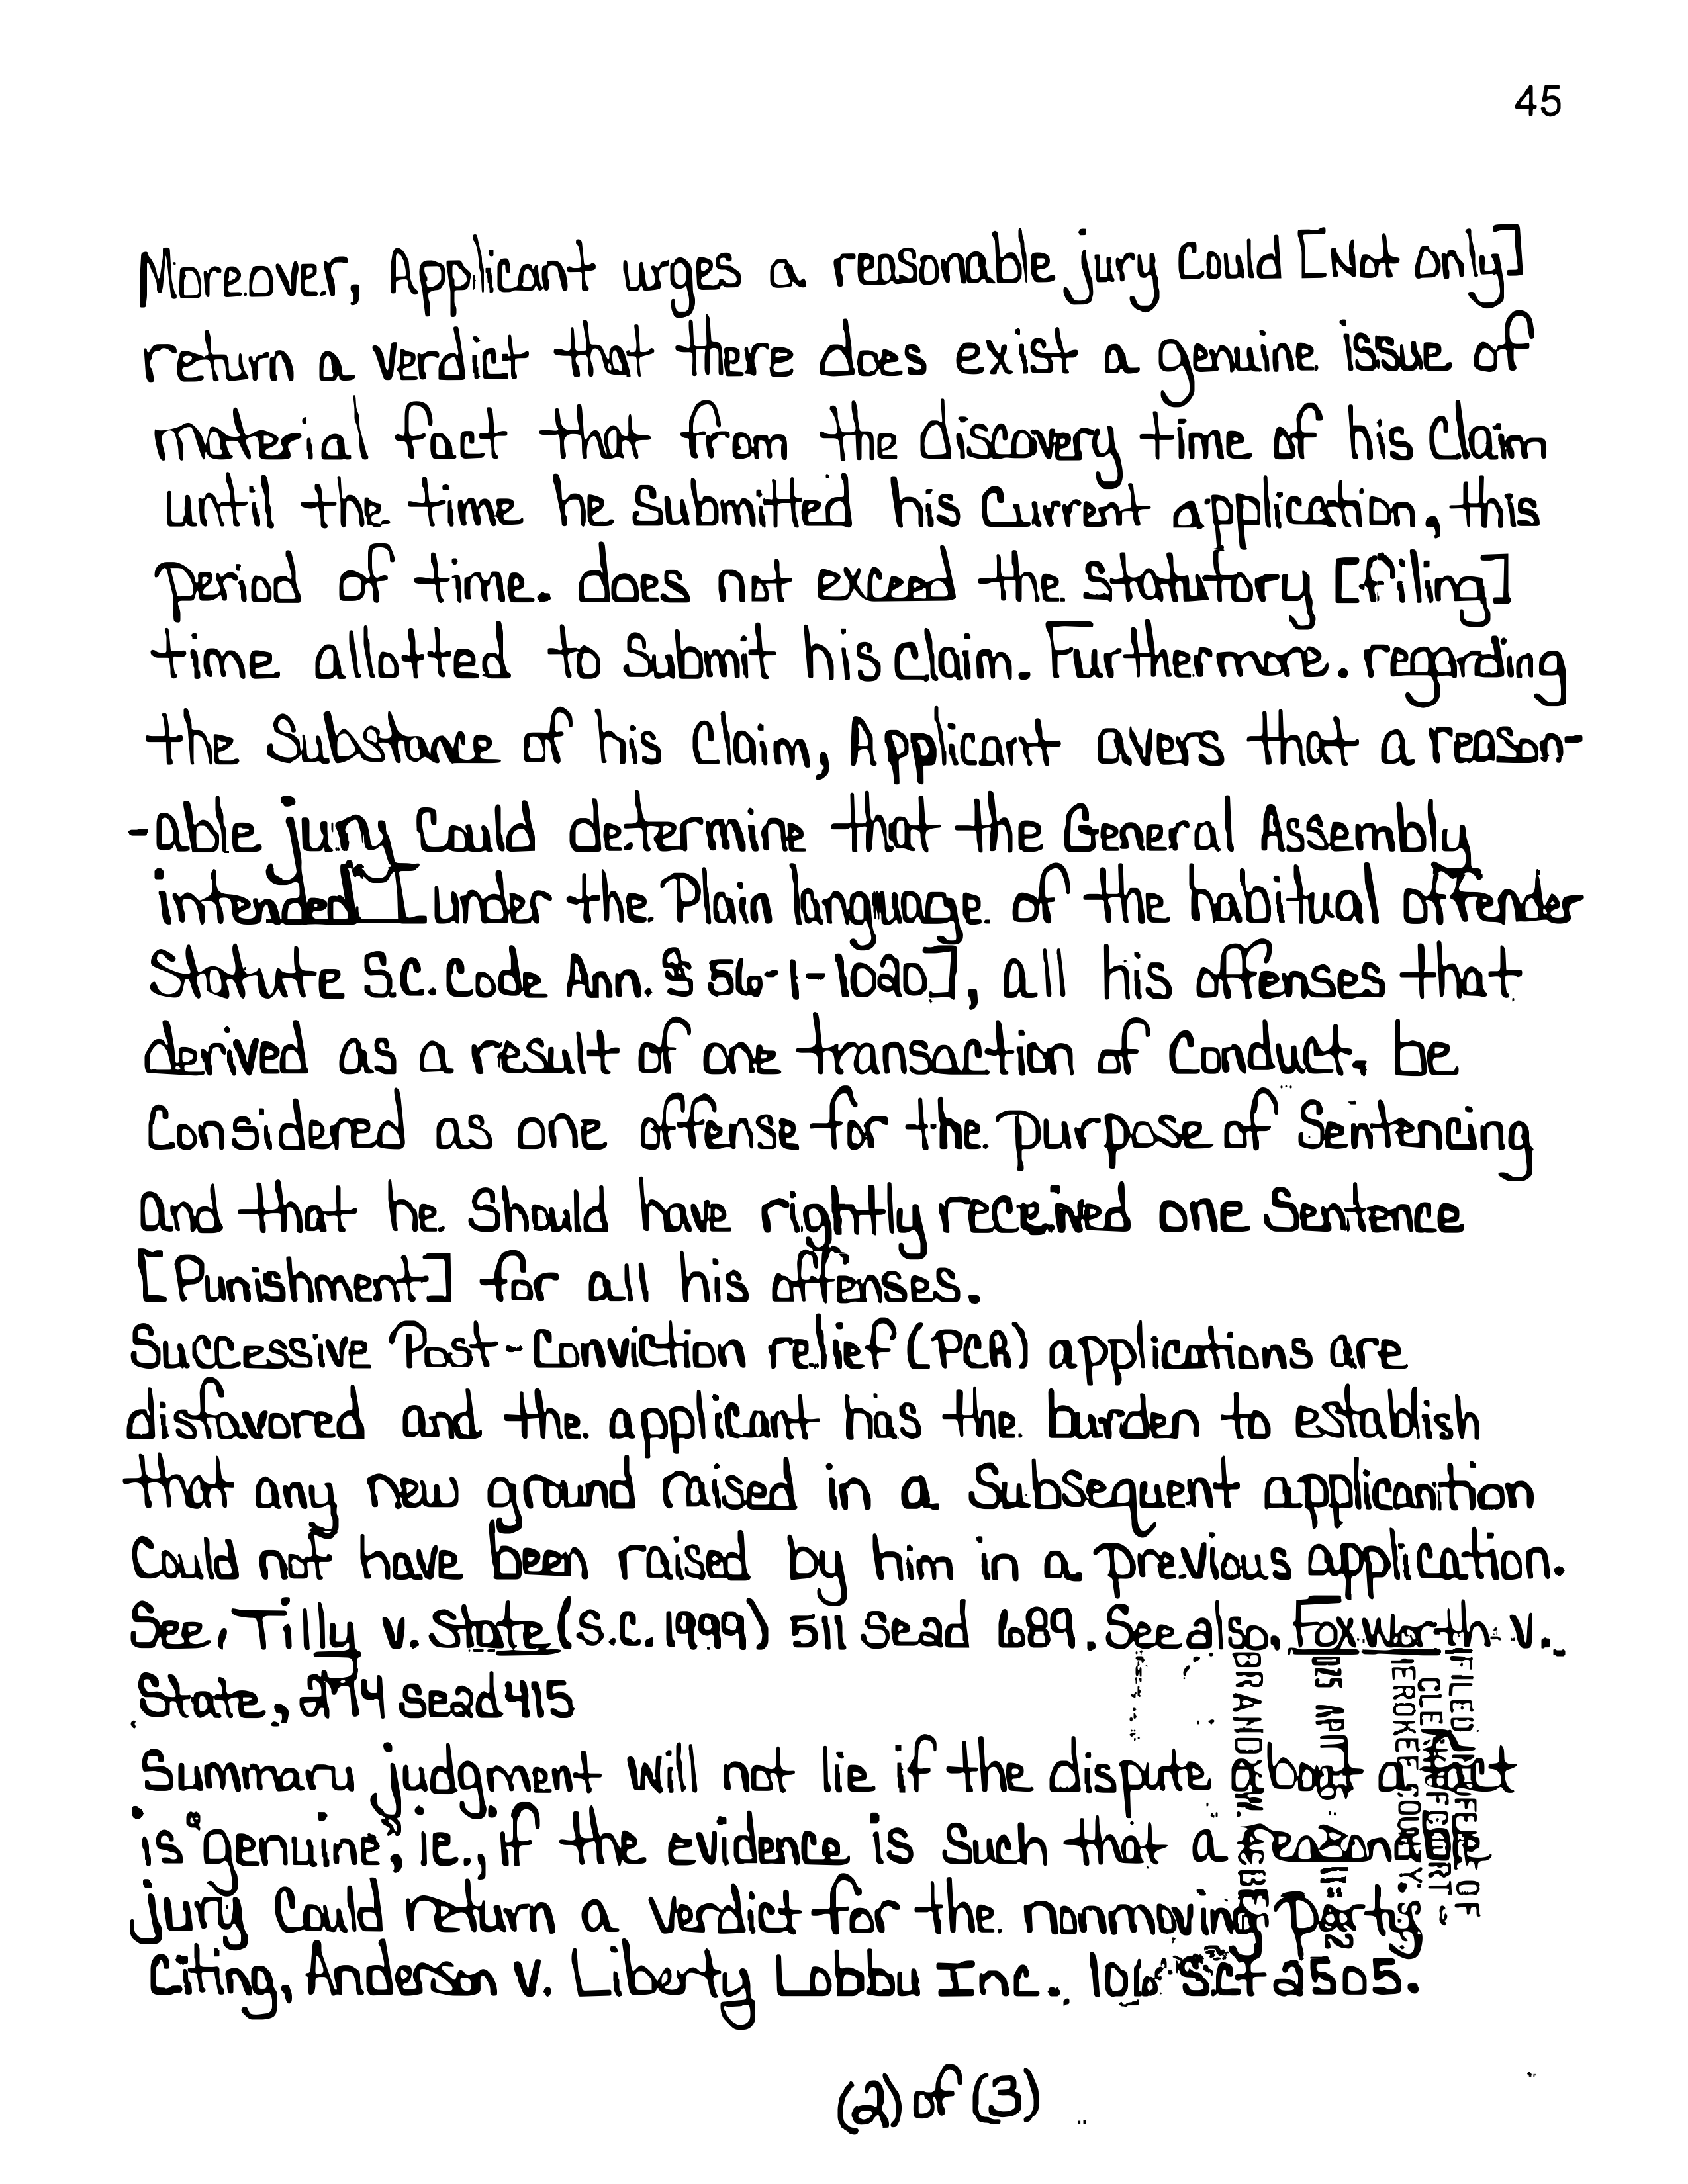 45
Moreover, Applicant urges a reasonable jury could [Not only]
return a verdict that there does exist a genuine issue of
material fact that from the discovery time of his claim
until the time he submitted his current application, this
period of time. does not exceed the statutory [filing]
time allotted to submit his claim. Furthermore. regarding
the substance of his claim, Applicant avers that a reason-
-able jury could determine that the General Assembly
intended [under the Plain language of the habitual offender
statute S.C. Code Ann. § 56-1-1020], all his offenses that
derived as a result of one transaction of conduct. be
considered as one offense for the purpose of sentencing
and that he should have rightly received one sentence
[Punishment] for all his offenses.
Successive Post-Conviction relief (PCR) applications are
disfavored and the applicant has the burden to establish
that any new ground raised in a subsequent applicanition
could not have been raised by him in a previous application.
See, Tilly v. State (S.C. 1999) 511 Se2d 689. See also, Foxworth v.
State., 274 Se2d 415
Summary judgment will not lie if the dispute about a fact
is "genuine", ie., if the evidence is such that a reasonable
jury could return a verdict for the nonmoving party
Citing, Anderson v. Liberty Lobby Inc., 106 S.ct 2505.
(2) of (3)
FILED OFFICE OF
CLERK OF COURT
CHEROKEE COUNTY, S.C.
BRANDY W.